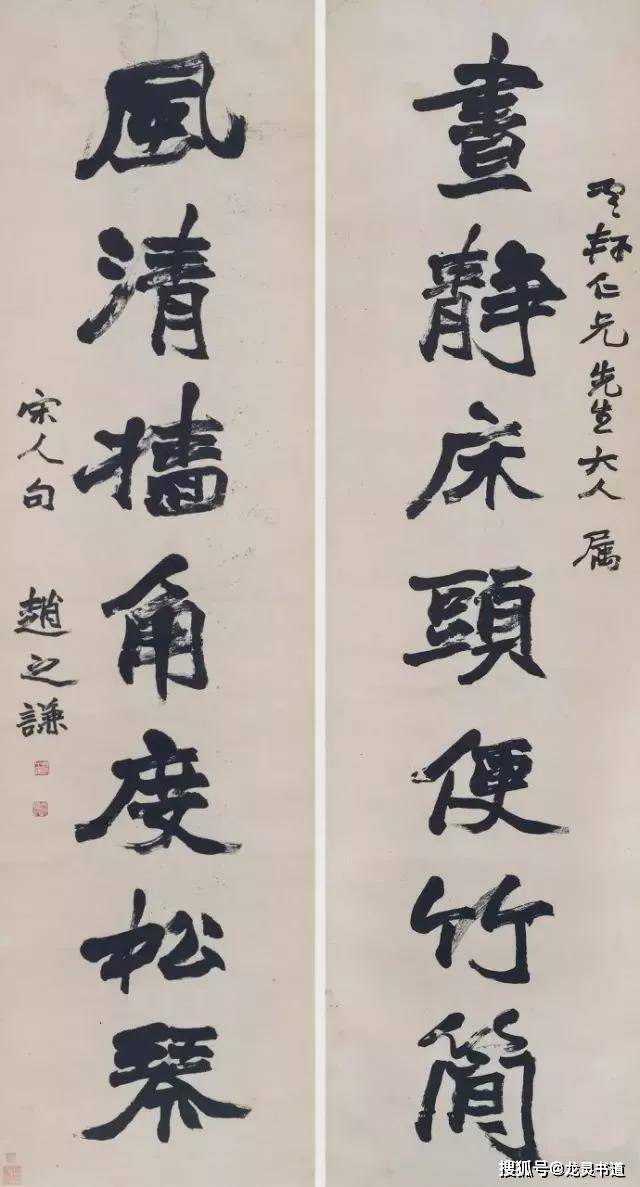 軒仁兄先生大人 属
晝靜床頭便竹簡
風清牆角度松琴
宋人句 趙之謙
搜狐号@龙灵书道